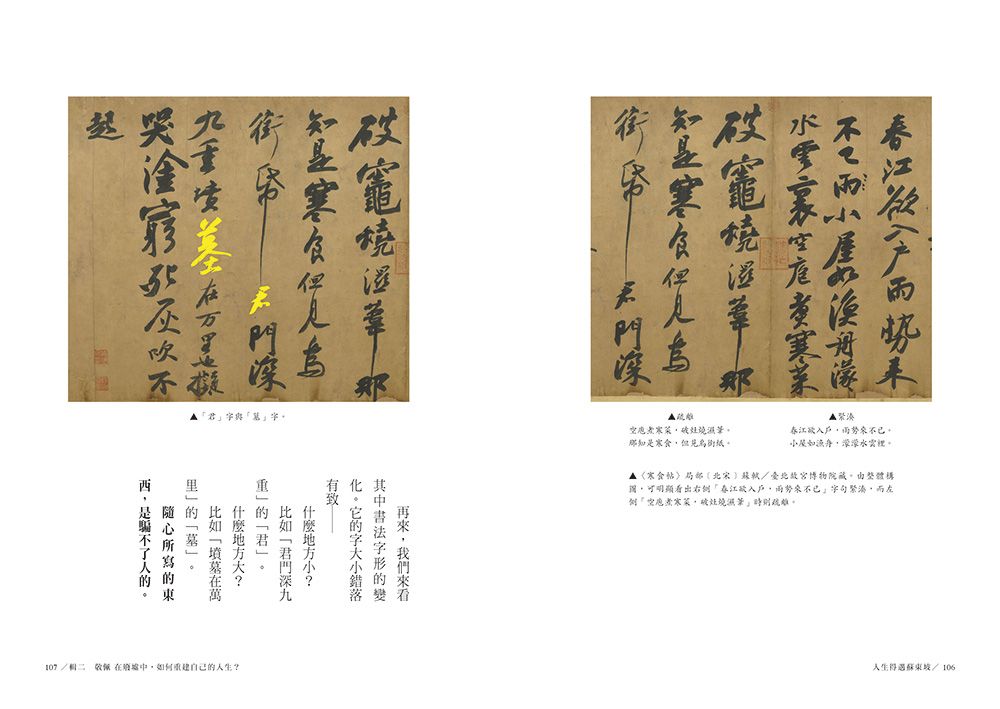 春江欲入戶雨勢來
不已雨小屋如漁舟濛
水雲裏空庖煮寒菜
破竈燒溼葦那
知是寒食但見烏
銜帋君門深
▲緊湊
春江欲入戶，雨勢來不已。
小屋如漁舟，濛濛水雲裡。
▲疏離
空庖煮寒菜，破灶燒濕葦。
那知是寒食，但見烏銜紙。
▲〈寒食帖〉局部〔北宋〕蘇軾／臺北故宮博物院藏。由整體構
圖，可明顯看出右側「春江欲入戶，雨勢來不已」字句緊湊，而左
側「空庖煮寒菜，破灶燒濕葦」時則疏離。
人生得遇蘇東坡／ 106
破竈燒溼葦那
知是寒食但見烏
銜帋君門深
九重墳墓在万里也擬
哭塗窮死灰吹不
起
▲「君」字與「墓」字。
再來，我們來看
其中書法字形的變
化。它的字大小錯落
有致——
什麼地方小？
比如「君門深九
重」的「君」。
什麼地方大？
比如「墳墓在萬
里」的「墓」。
隨心所寫的東
西，是騙不了人的。
107 ／輯二　敬佩 在廢墟中，如何重建自己的人生？